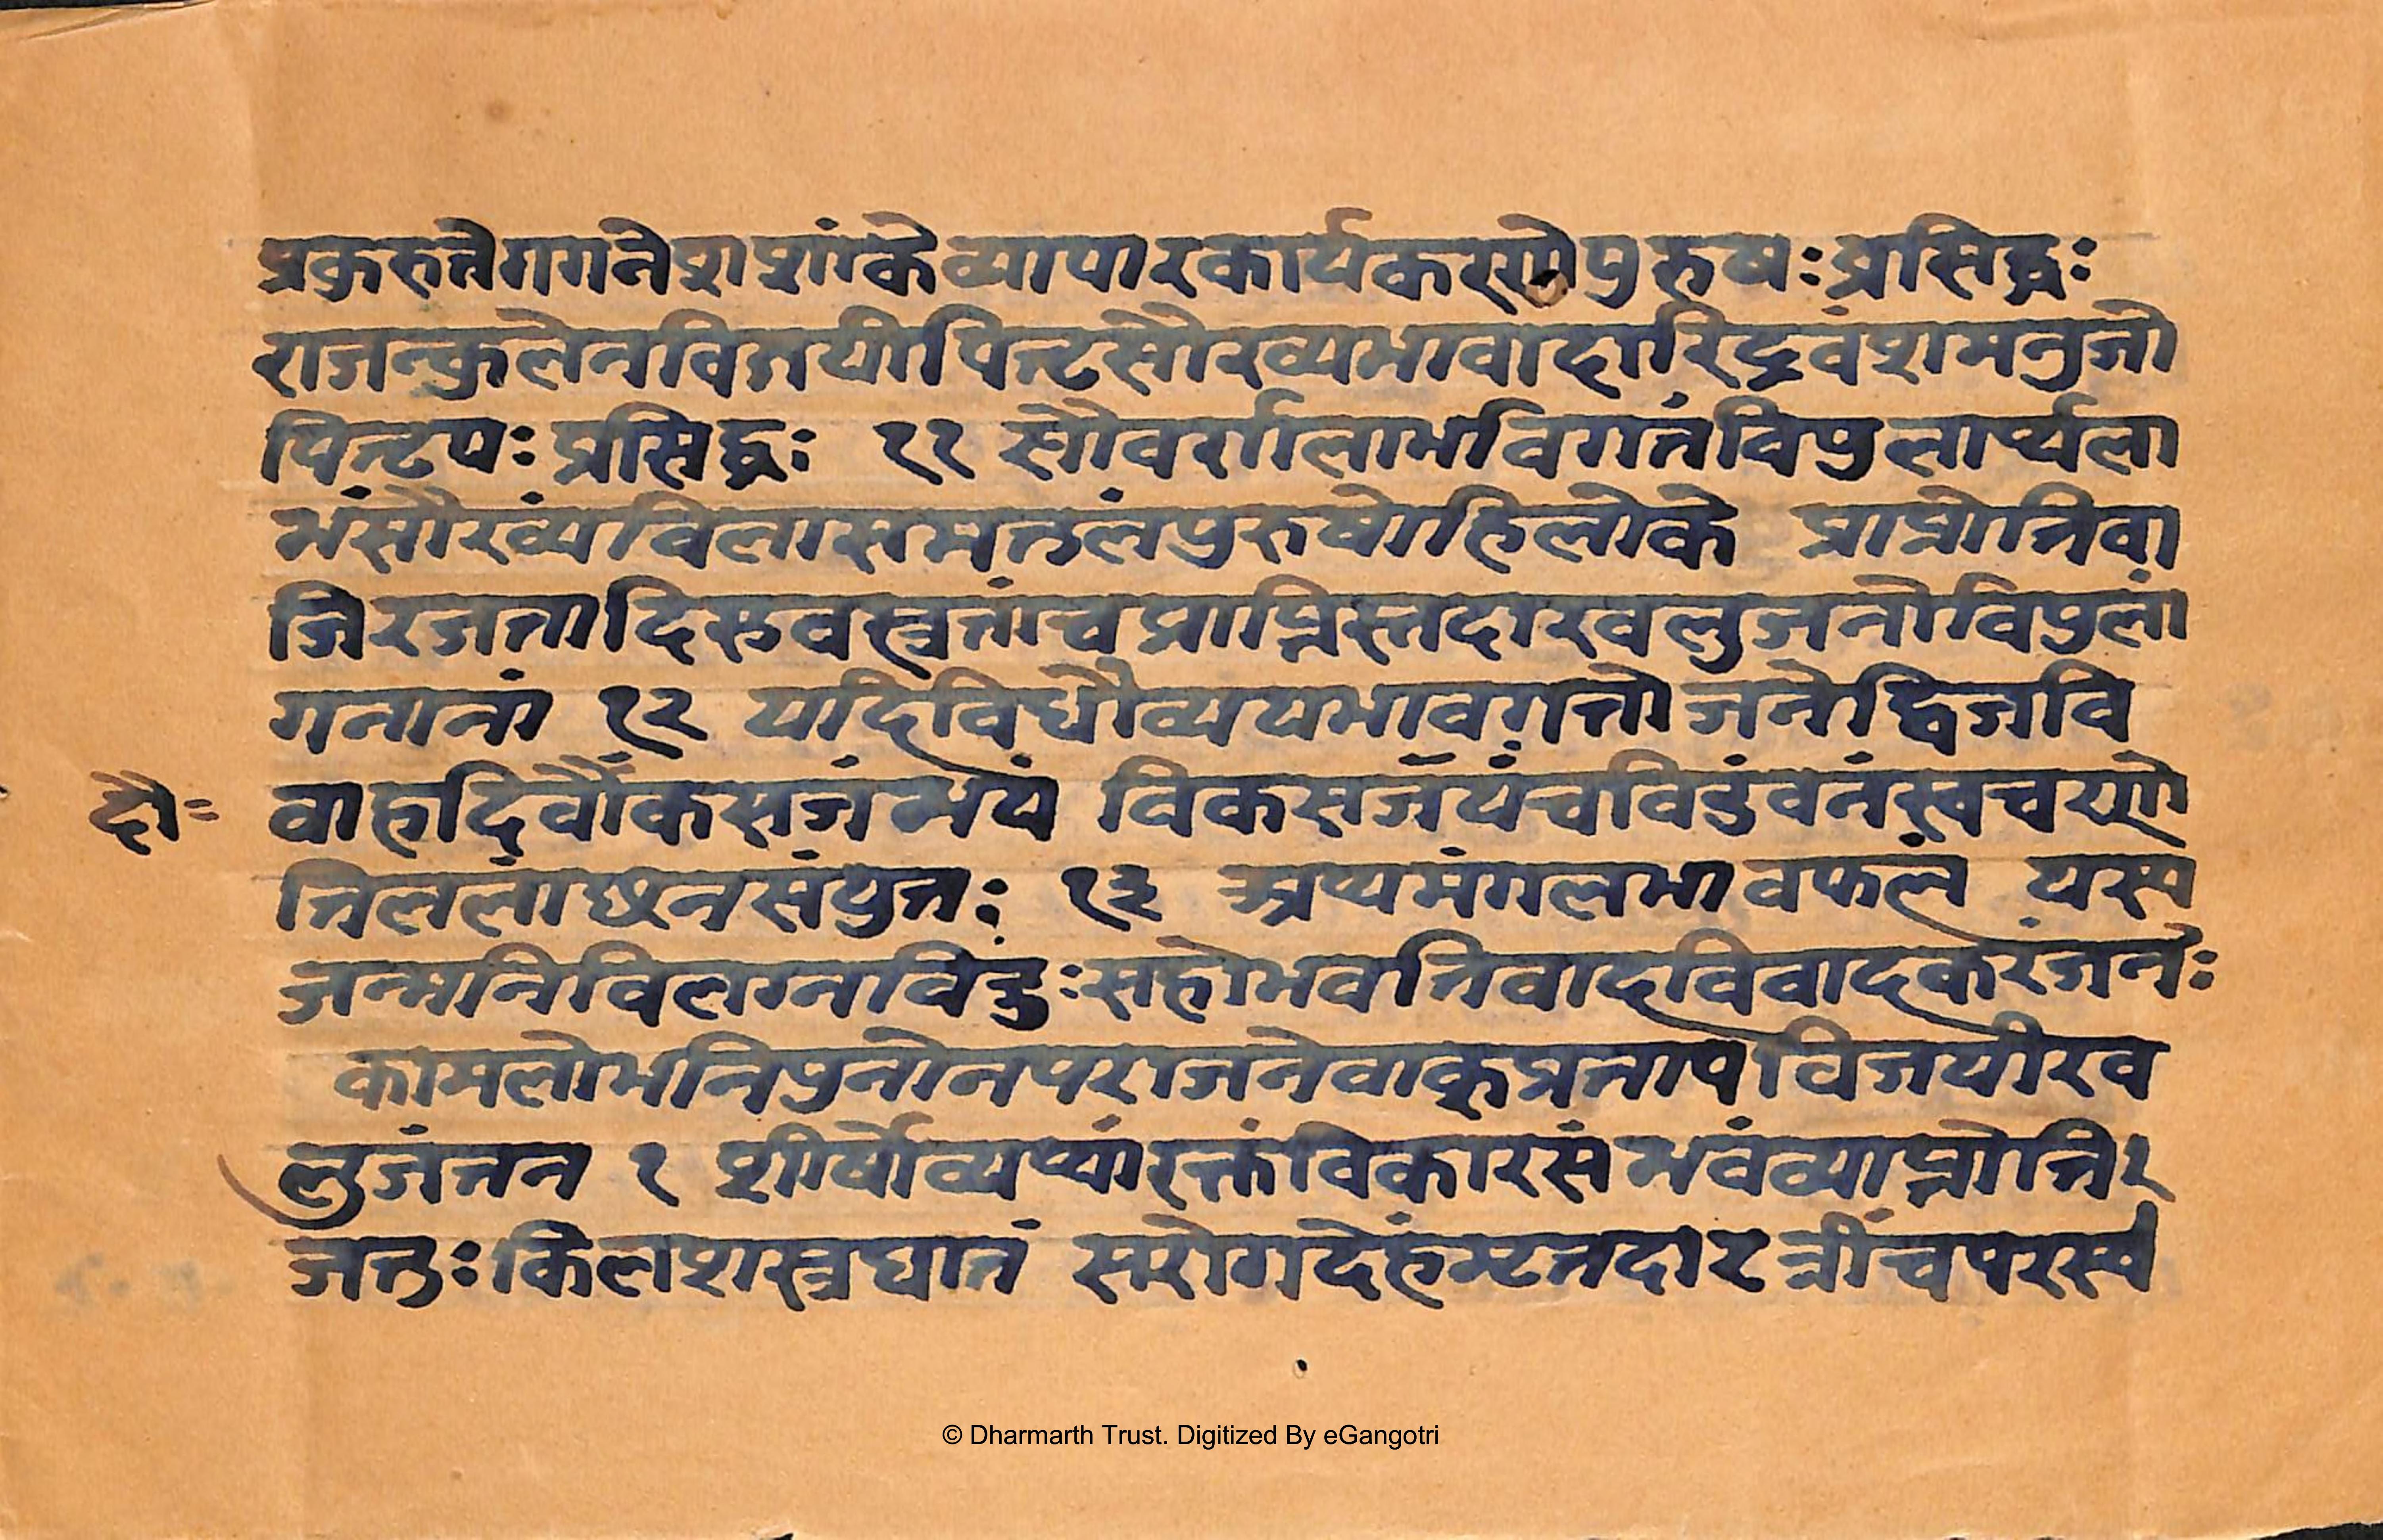 प्रकुरुतेगगनेशशांकेव्यापारकार्यकरणेपुरुषःप्रसिद्धः
राजन्कुलेनविजयीपितृसौख्यभावादारिद्रवंशमनुजो
पितृपःप्रसिद्धः ११ सौवर्णलाभविगतंविपुलार्थला
भंसौख्यंविलासमतुलंपुरुषोहिलोके प्राप्नोतिवा
जिरजतादिसुवस्त्रतांचप्राप्तिस्तदाखलुजनोविपुलां
गनानां १२ यदिविधौव्ययभावगतोजनेद्विजवि
दौ= वाहदिवौंकसजंभयं विकसजंयंचविडंवनंस्वचरणो
तिललांछनसंयुतः १३ अथमंगलभावफलं यस्य
जन्मनिविलग्नवित्तुःसहोभवतिवादविवादकरंजनः
कामलोभनिपुनोनपराजनेवाकुप्रतापविजयीख
लुजंतन १ शीर्षोव्यथांरक्तंविकारसंभवंव्याप्नोति
जन्तुःकिलशस्त्रघातं सरोगदेहंमृतदारत्रींचपरस्व
© Dharmarth Trust. Digitized By eGangotri